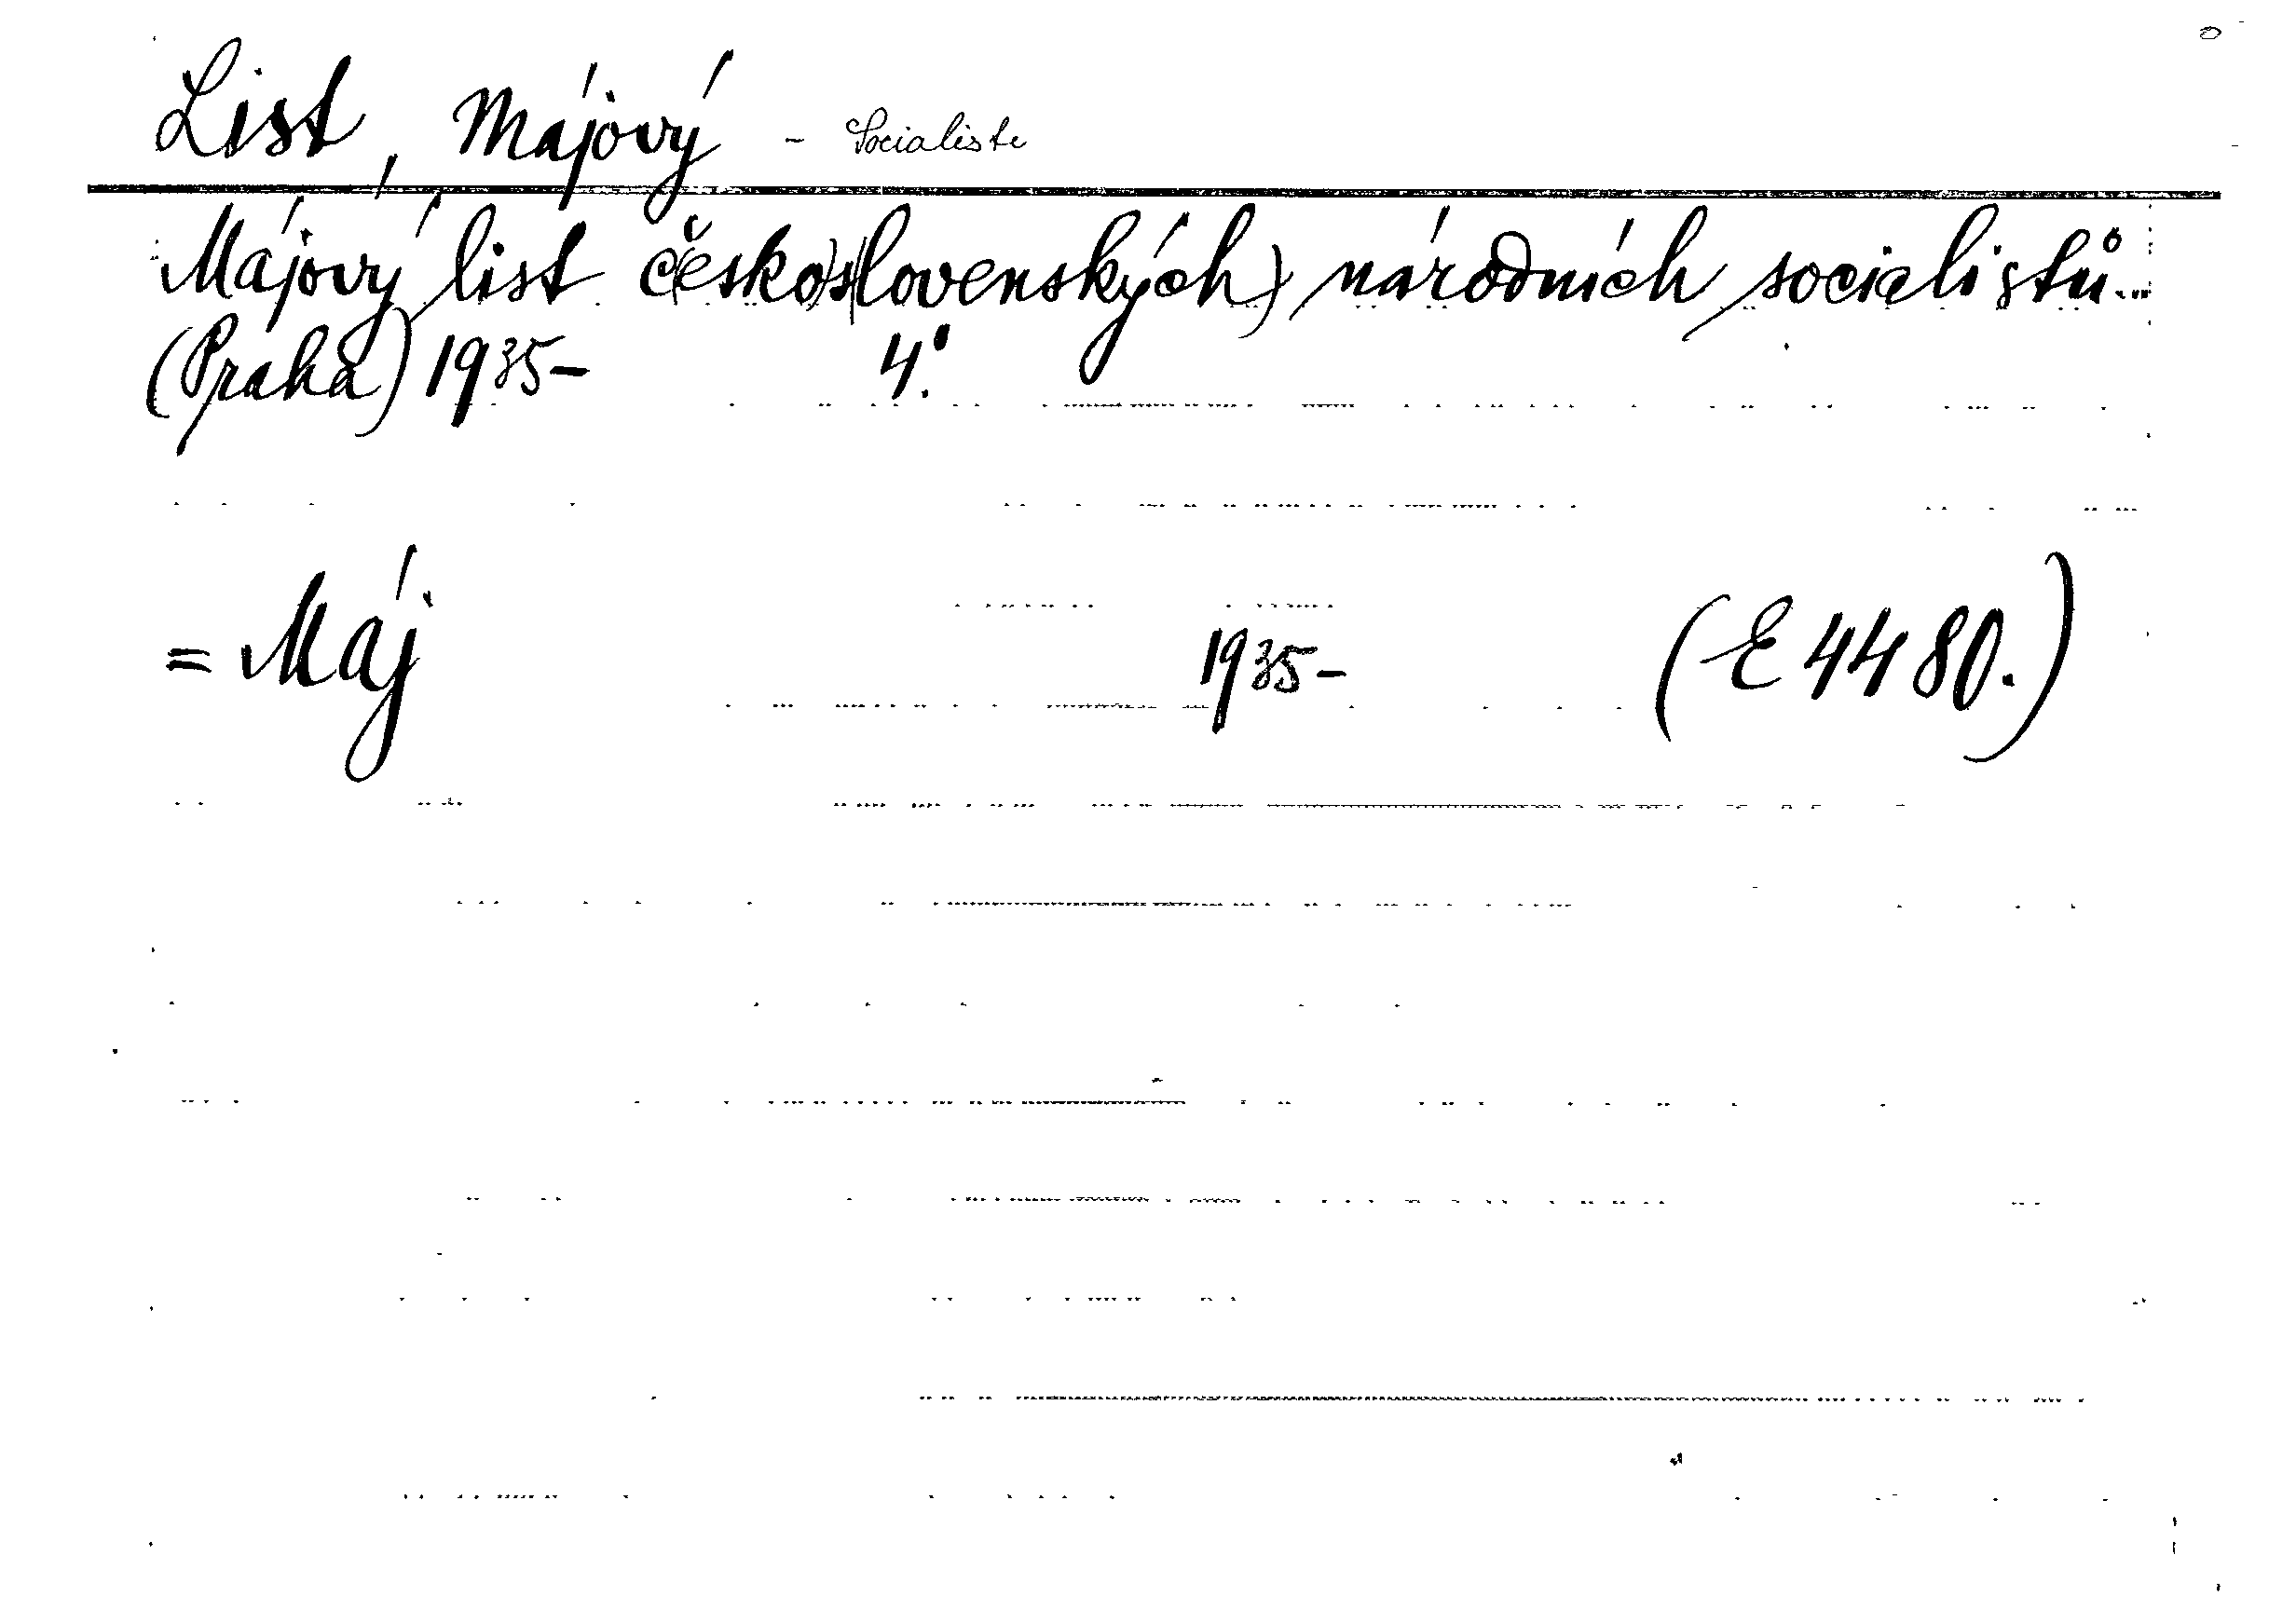 List, Májový - Socialisté
Májový list česko)s(lovenských) národních socialistů...
(Praha) 1935- 4°.
= Máj 1935- (E 4480.)